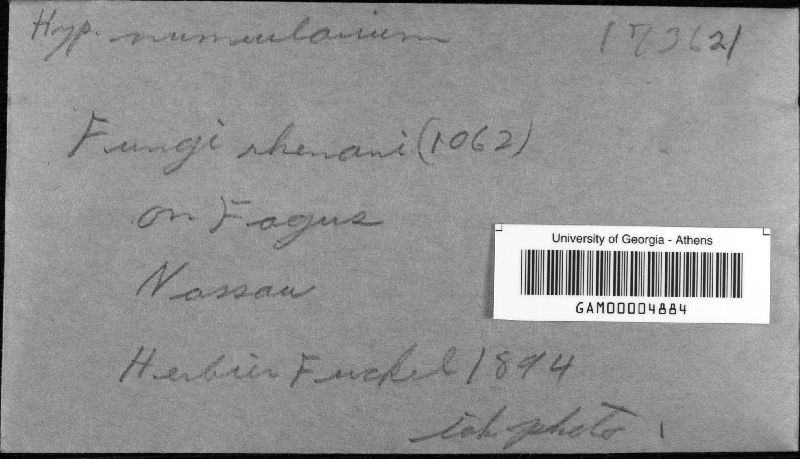 Hyp. nummularium 17362
Fungi rhenani (1062)
on Fagus
University of Georgia - Athens
GAM00004884
Nassau
Herbier Fuckel 1894
photo